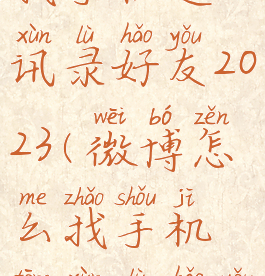 xùn lù hǎo yǒu
讯录好友20
wēi bó zěn
23(微博怎
me zhǎo shǒu jī
么找手机